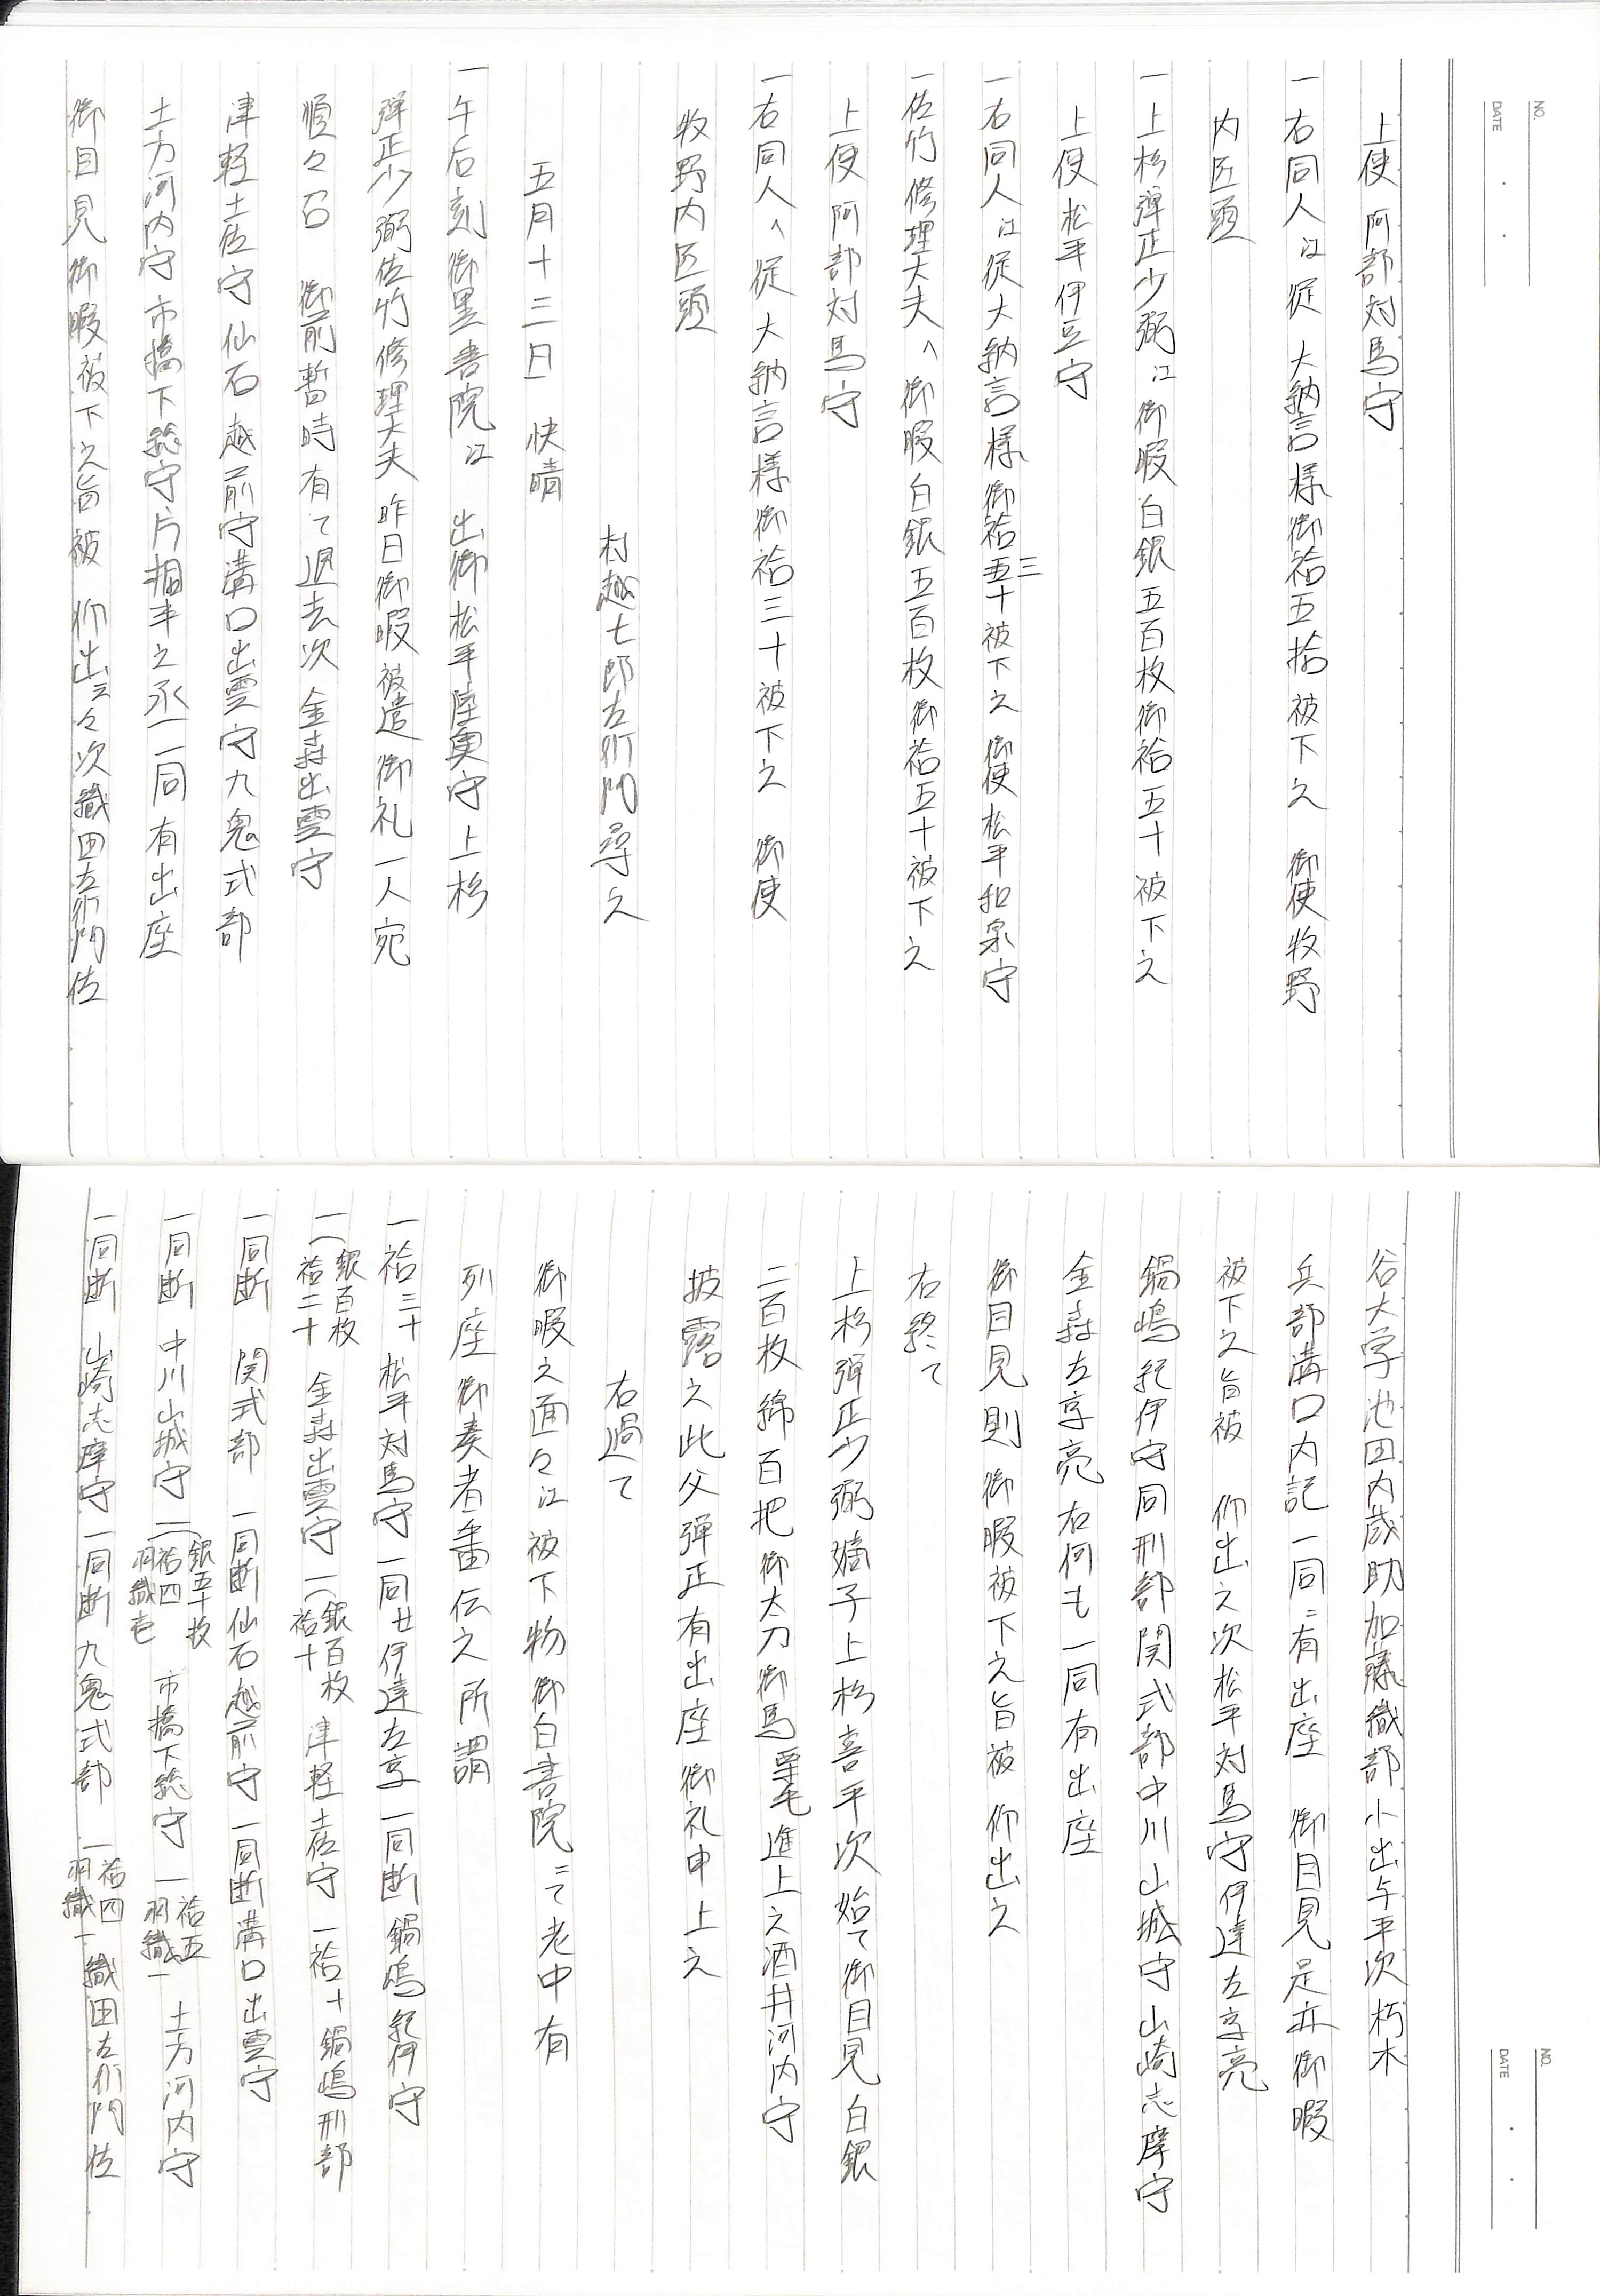 NO.
DATE
上使 阿部対馬守
一右同人江従 大納言様御袷五拾被下之 御使牧野
内匠頭
一上杉弾正少弼江御暇白銀五百枚御袷五十被下之
上使松平伊豆守
一右同人江従大納言様御袷五十被下之 御使松平和泉守
三
一佐竹修理大夫へ御暇白銀五百枚御袷五十被下之
上使阿部対馬守
一右同人へ従大納言様御袷三十被下之 御使
牧野内匠頭
村越七郎左衛門尋之
五月十三日 快晴
一午后刻御黒書院江 出御松平陸奥守上杉
弾正少弼佐竹修理大夫昨日御暇被遣御礼一人宛
順々召 御前暫時有て退去次金森出雲守
津軽土佐守仙石越前守溝口出雲守九鬼式部
土方河内守市橋下総守片桐半之丞一同有出座
御目見御暇被下之旨被 仰出云々次織田左衛門佐
NO.
DATE
谷大学池田内蔵助加藤織部小出与平次朽木
兵部溝口内記一同ニ有出座 御目見是亦御暇
被下之旨被 仰出之次松平対馬守伊達左京亮
鍋嶋紀伊守同刑部関式部中川山城守山崎志摩守
金森左京亮右何も一同有出座
御目見則御暇被下之旨被 仰出之
右終て
上杉弾正少弼嫡子上杉喜平次始て御目見白銀
二百枚綿百把御太刀御馬栗毛進上之酒井河内守
披露之此父弾正有出座御礼申上之
右過て
御暇之面々江被下物御白書院ニて老中有
列座御奏者番伝之所謂
一袷三十 松平対馬守 一同廿伊達左京 一同断鍋嶋紀伊守
一(銀百枚 袷二十 金森出雲守 一(銀百枚 袷十 津軽土佐守 一袷十鍋嶋刑部
一同断 関式部 一同断仙石越前守 一同断溝口出雲守
一同断 中川山城守 一(銀五十枚 袷四 羽織壱 市橋下総守 一袷五 羽織一 土方河内守
一同断 山崎志摩守 一同断九鬼式部 一袷四 羽織一 織田左衛門佐